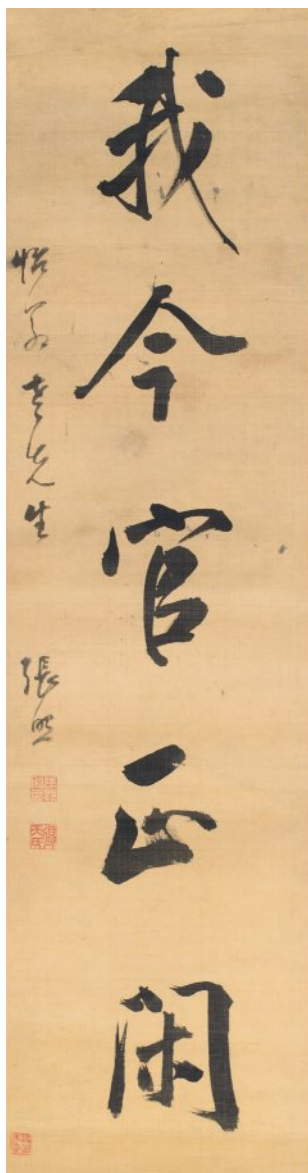 我今官正閑
怡翁老先生 張照